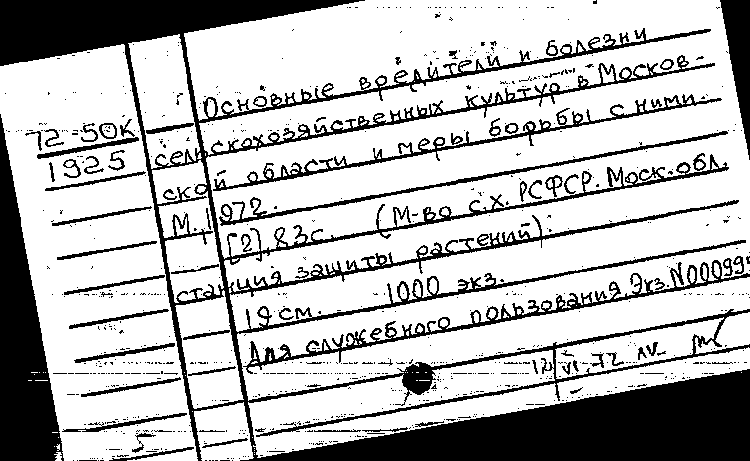 Основные вредители и болезни
72-50К
1925
сельскохозяйственных культур в Москов-
ской области и меры борьбы с ними.
М., 1972.
[2], 83с. (М-во с.х. РСФСР. Моск. обл.
станция защиты растений).
19 см. 1000 экз.
Для служебного пользования. Экз. N00099
12/VI-72
5